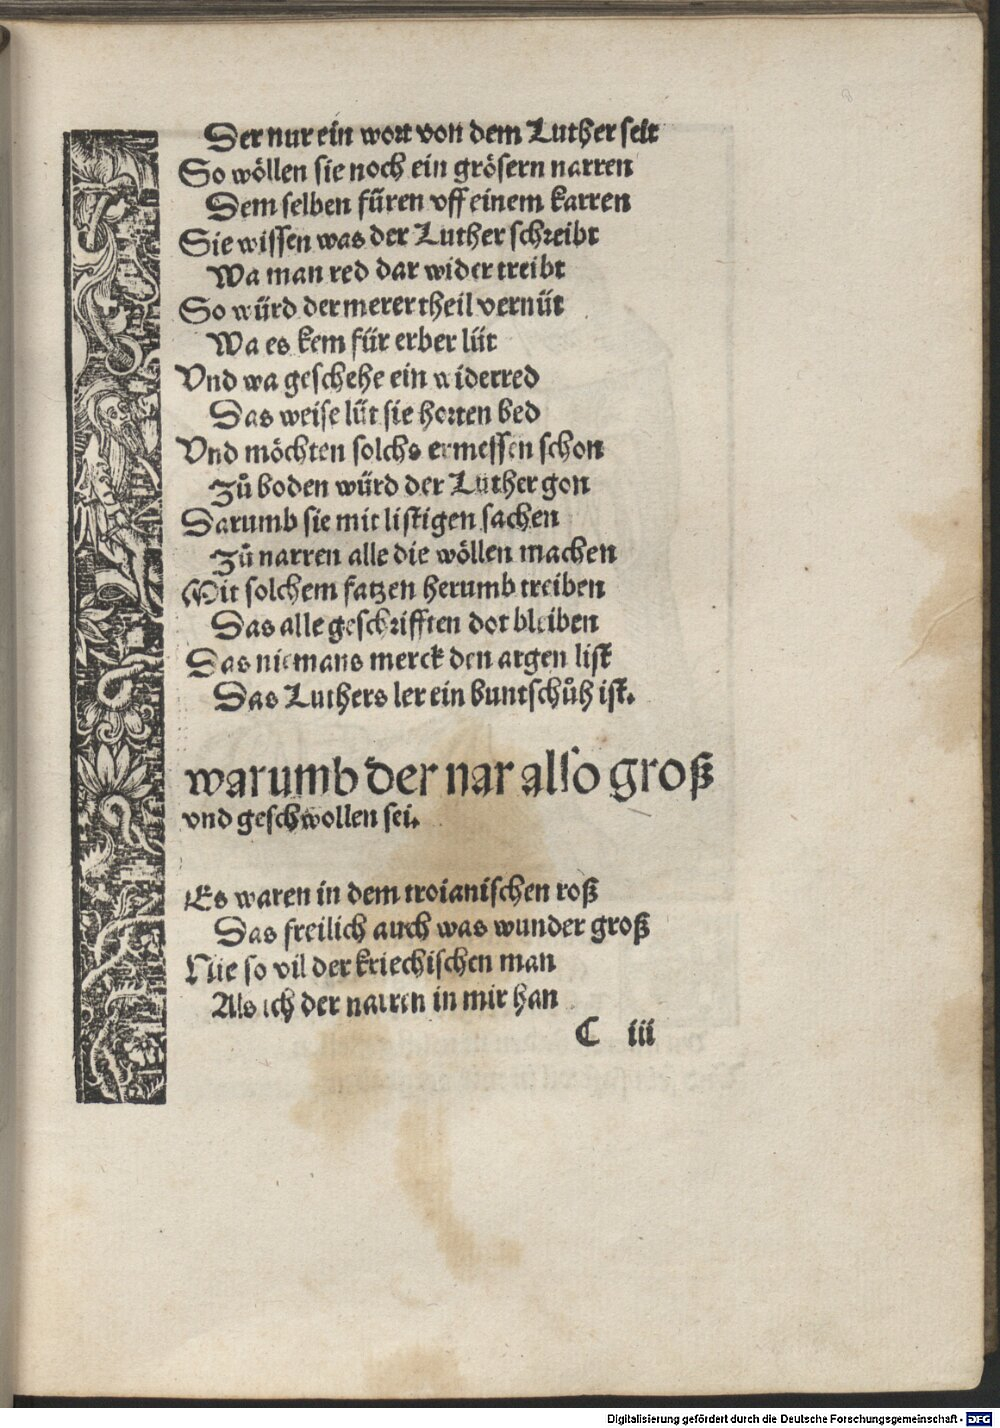 Der nur ein wort von dem Luther seit
So wöllen sie noch ein grösern narren
Dem selben füren vff einem karren
Sie wissen was der Luther schreibt
Wa man red dar wider treibt
So würd der merer theil vernüt
Wa es kem für erber lüt
Vnd wa geschehe ein widerred
Das weise lüt sie horten bed
Vnd möchten solchs ermessen schon
Zů boden würd der Luther gon
Darumb sie mit listigen sachen
Zů narren alle die wöllen machen
Mit solchem fatzen herumb treiben
Das alle geschrifften dot bleiben
Das niemans merck den argen list
Das Luthers ler ein buntschůh ist.
warumb der nar also groß
vnd geschwollen sei.
Es waren in dem troianischen roß
Das freilich auch was wunder groß
Nie so vil der kriechischen man
Als ich der narren in mir han
C iii
Digitalisierung gefördert durch die Deutsche Forschungsgemeinschaft - DFG